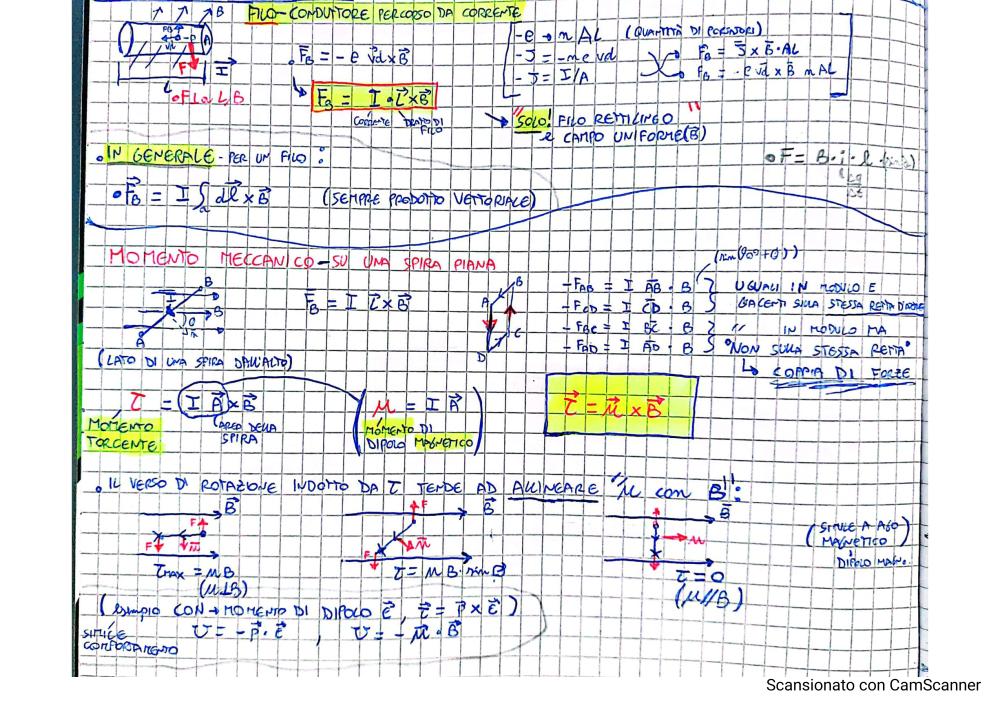 FILO-CONDUTTORE PERCORSO DA CORRENTE
B
F
I
L
F⊥a L, B
F_B = -e vd x B
F_B = I · L x B
CORRENTE
TRATTO DI FILO
-e → n AL (QUANTITÀ DI PORTATORI)
-J = -ne vd
-J = I/A
F_B = J x B · AL
F_B = -e vd x B n AL
"SOLO! FILO RETTILINEO"
e CAMPO UNIFORME (B)
F = B · i · l
IN GENERALE - PER UN FILO:
F_B = I ∫ dl x B (SEMPRE PRODOTTO VETTORIALE)
MOMENTO MECCANICO - SU UNA SPIRA PIANA
(sin(90°+θ))
B
I
B
θ
A
(LATO DI UNA SPIRA DALL'ALTO)
F_B = I L x B
A
B
C
D
-F_AB = I AB · B
-F_CD = I CD · B
UGUALI IN MODULO E
GIACENTI SULLA STESSA RETTA D'AZIONE
-F_BC = I BC · B
-F_AD = I AD · B
" IN MODULO MA
"NON SULLA STESSA RETTA"
↳ COPPIA DI FORZE
τ = I A x B
MOMENTO TORCENTE
(AREA DELLA SPIRA
μ = I A
MOMENTO DI DIPOLO MAGNETICO
τ = μ x B
IL VERSO DI ROTAZIONE INDOTTO DA τ TENDE AD ALLINEARE "μ con B":
B
F
F
m
τ_MAX = μB
(μ⊥B)
B
F
F
m
τ = μ B · sin θ
B
μ
τ = 0
(μ//B)
(SIMILE A AGO MAGNETICO
DIPOLO MAGN.
(esempio CON → MOMENTO DI DIPOLO E, τ = p x E)
SIMILE COMPORTAMENTO
U = -p · E , U = -μ · B
Scansionato con CamScanner